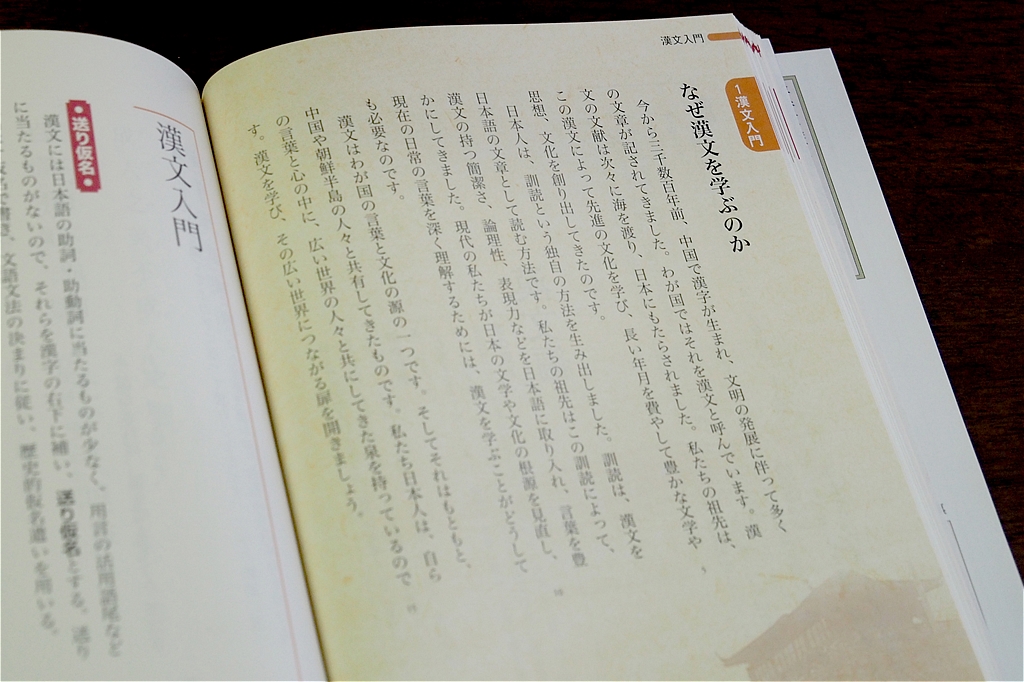 漢文入門
1 漢文入門
なぜ漢文を学ぶのか
今から三千数百年前、中国で漢字が生まれ、文明の発展に伴って多く
の文章が記されてきました。わが国ではそれを漢文と呼んでいます。漢
文の文献は次々に海を渡り、日本にもたらされました。私たちの祖先は、
この漢文によって先進の文化を学び、長い年月を費やして豊かな文学や
思想、文化を創り出してきたのです。
日本人は、訓読という独自の方法を生み出しました。訓読は、漢文を
日本語の文章として読む方法です。私たちの祖先はこの訓読によって、
漢文の持つ簡潔さ、論理性、表現力などを日本語に取り入れ、言葉を豊
かにしてきました。現代の私たちが日本の文学や文化の根源を見直し、
現在の日常の言葉を深く理解するためには、漢文を学ぶことがどうして
も必要なのです。
漢文はわが国の言葉と文化の源の一つです。そしてそれはもともと、
中国や朝鮮半島の人々と共有してきたものです。私たち日本人は、自ら
の言葉と心の中に、広い世界の人々と共にしてきた泉を持っているので
す。漢文を学び、その広い世界につながる扉を開きましょう。
5
10
15
漢文入門
送り仮名
漢文には日本語の助詞・助動詞に当たるものが少なく、用言の活用語尾など
に当たるものがないので、それらを漢字の右下に補い、送り仮名とする。送り
仮名で書き、文語文法の決まりに従い、歴史的仮名遣いを用いる。